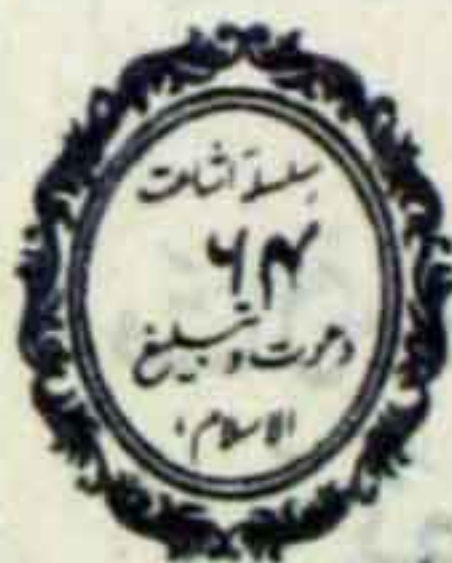 سلسلۂ اشاعت
۶۴
دعوت و تبلیغ
الاسلام،